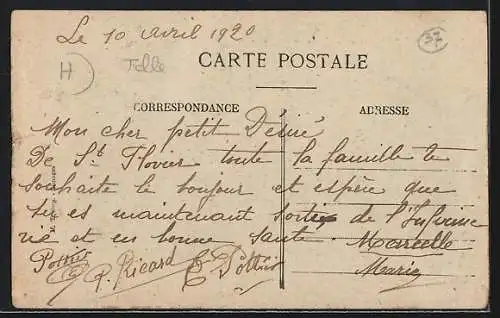 Le 10 avril 1920
37
CARTE POSTALE
H
CORRESPONDANCE
ADRESSE
Mon cher petit Désiré
De St Flovier toute la famille te
souhaite le bonjour et espère que
tu es maintenant sortie de l'Infirme
rie et en bonne santé. Marcelle
Pottier P. Ricard E Pottier Maria